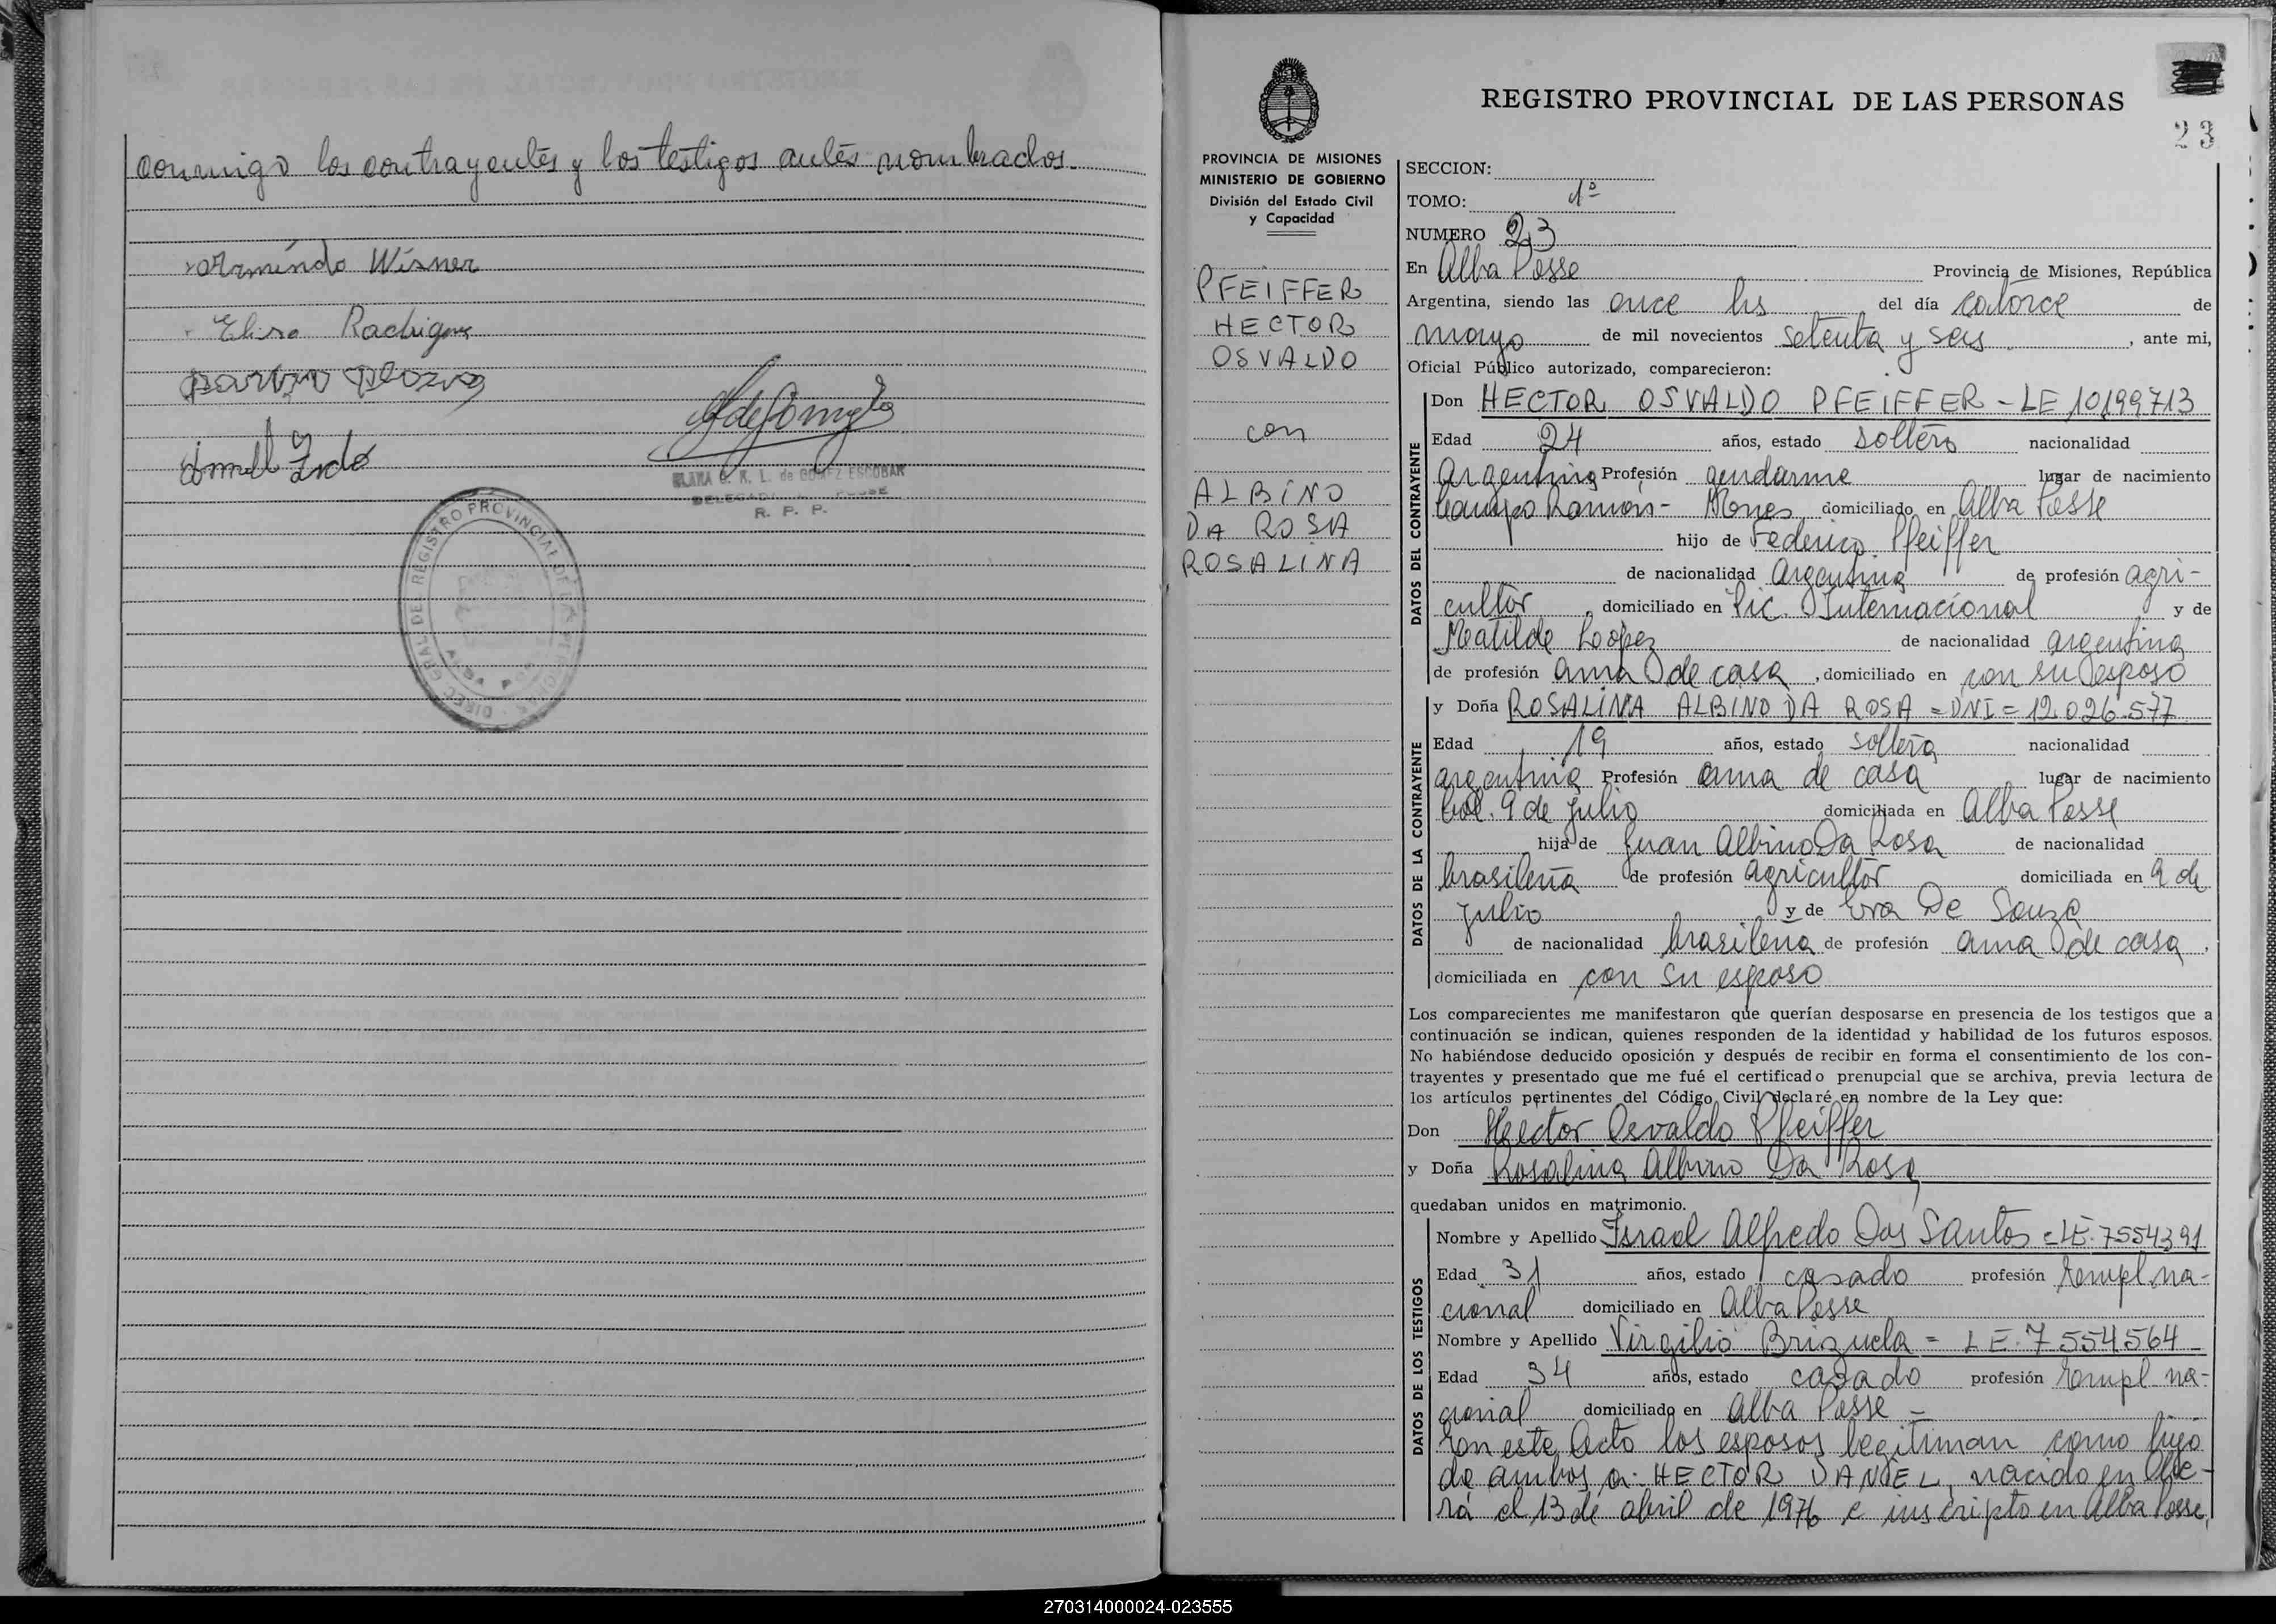 conmigo los contrayentes y los testigos antes nombrados.
Armindo Wisner
Elisa
R. P. P.
REGISTRO PROVINCIAL DE LAS PERSONAS
23
PROVINCIA DE MISIONES
MINISTERIO DE GOBIERNO
División del Estado Civil
y Capacidad
PFEIFFER
HECTOR
OSVALDO
con
ALBINO
DA ROSA
ROSALINA
SECCION:
TOMO: 1º
NUMERO 23
En Alba Posse Provincia de Misiones, República
Argentina, siendo las once hs del día catorce de
mayo de mil novecientos setenta y seis, ante mi,
Oficial Público autorizado, comparecieron:
DATOS DEL CONTRAYENTE
Don HECTOR OSVALDO PFEIFFER - LE 10199713
Edad 24 años, estado soltero nacionalidad
Argentina Profesión gendarme lugar de nacimiento
Campo Ramón - Mnes domiciliado en Alba Posse
hijo de Federico Pfeiffer
de nacionalidad Argentina de profesión agri-
cultor, domiciliado en Pic. Internacional y de
Matilde Loopez de nacionalidad argentina
de profesión ama de casa, domiciliado en con su esposo
DATOS DE LA CONTRAYENTE
y Doña ROSALINA ALBINO DA ROSA = DNI = 12.026.577
Edad 19 años, estado soltera nacionalidad
argentina Profesión ama de casa lugar de nacimiento
Col. 9 de julio domiciliada en Alba Posse
hija de Juan Albino Da Rosa de nacionalidad
brasileña de profesión agricultor domiciliada en 9 de
julio y de Eva De Souza
de nacionalidad brasileña de profesión ama de casa,
domiciliada en con su esposo
Los comparecientes me manifestaron que querían desposarse en presencia de los testigos que a
continuación se indican, quienes responden de la identidad y habilidad de los futuros esposos.
No habiéndose deducido oposición y después de recibir en forma el consentimiento de los con-
trayentes y presentado que me fué el certificado prenupcial que se archiva, previa lectura de
los artículos pertinentes del Código Civil declaré en nombre de la Ley que:
Don Hector Osvaldo Pfeiffer
y Doña Rosalina Albino Da Rosa
quedaban unidos en matrimonio.
DATOS DE LOS TESTIGOS
Nombre y Apellido Israel Alfredo Dos Santos = LE. 7554391
Edad 31 años, estado casado profesión Empl na-
cional domiciliado en Alba Posse
Nombre y Apellido Virgilio Brizuela = LE. 7554564
Edad 34 años, estado casado profesión Empl na-
cional domiciliado en Alba Posse -
En este Acto los esposos legitiman como hijo
de ambos a: HECTOR DANIEL, nacido en Obe-
rá el 13 de abril de 1976 e inscripto en Alba Posse,
270314000024-023555